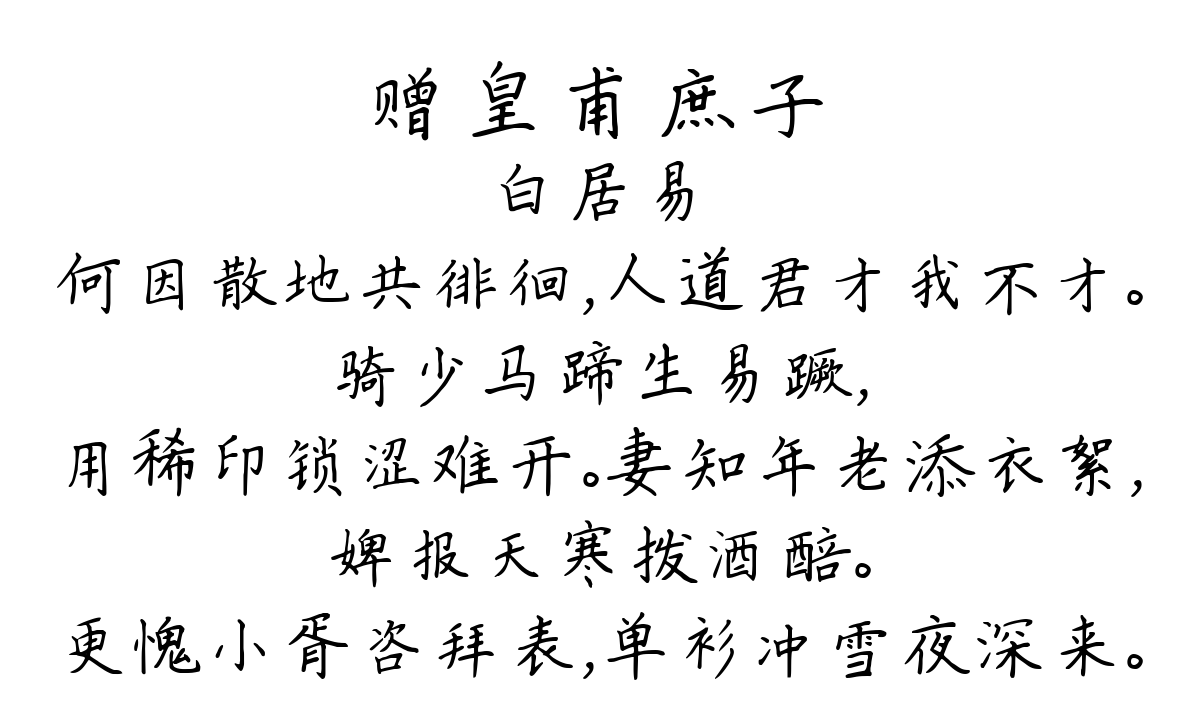 赠皇甫庶子
白居易
何因散地共徘徊,人道君才我不才。
骑少马蹄生易蹶,
用稀印锁涩难开。妻知年老添衣絮,
婢报天寒拨酒醅。
更愧小胥咨拜表,单衫冲雪夜深来。